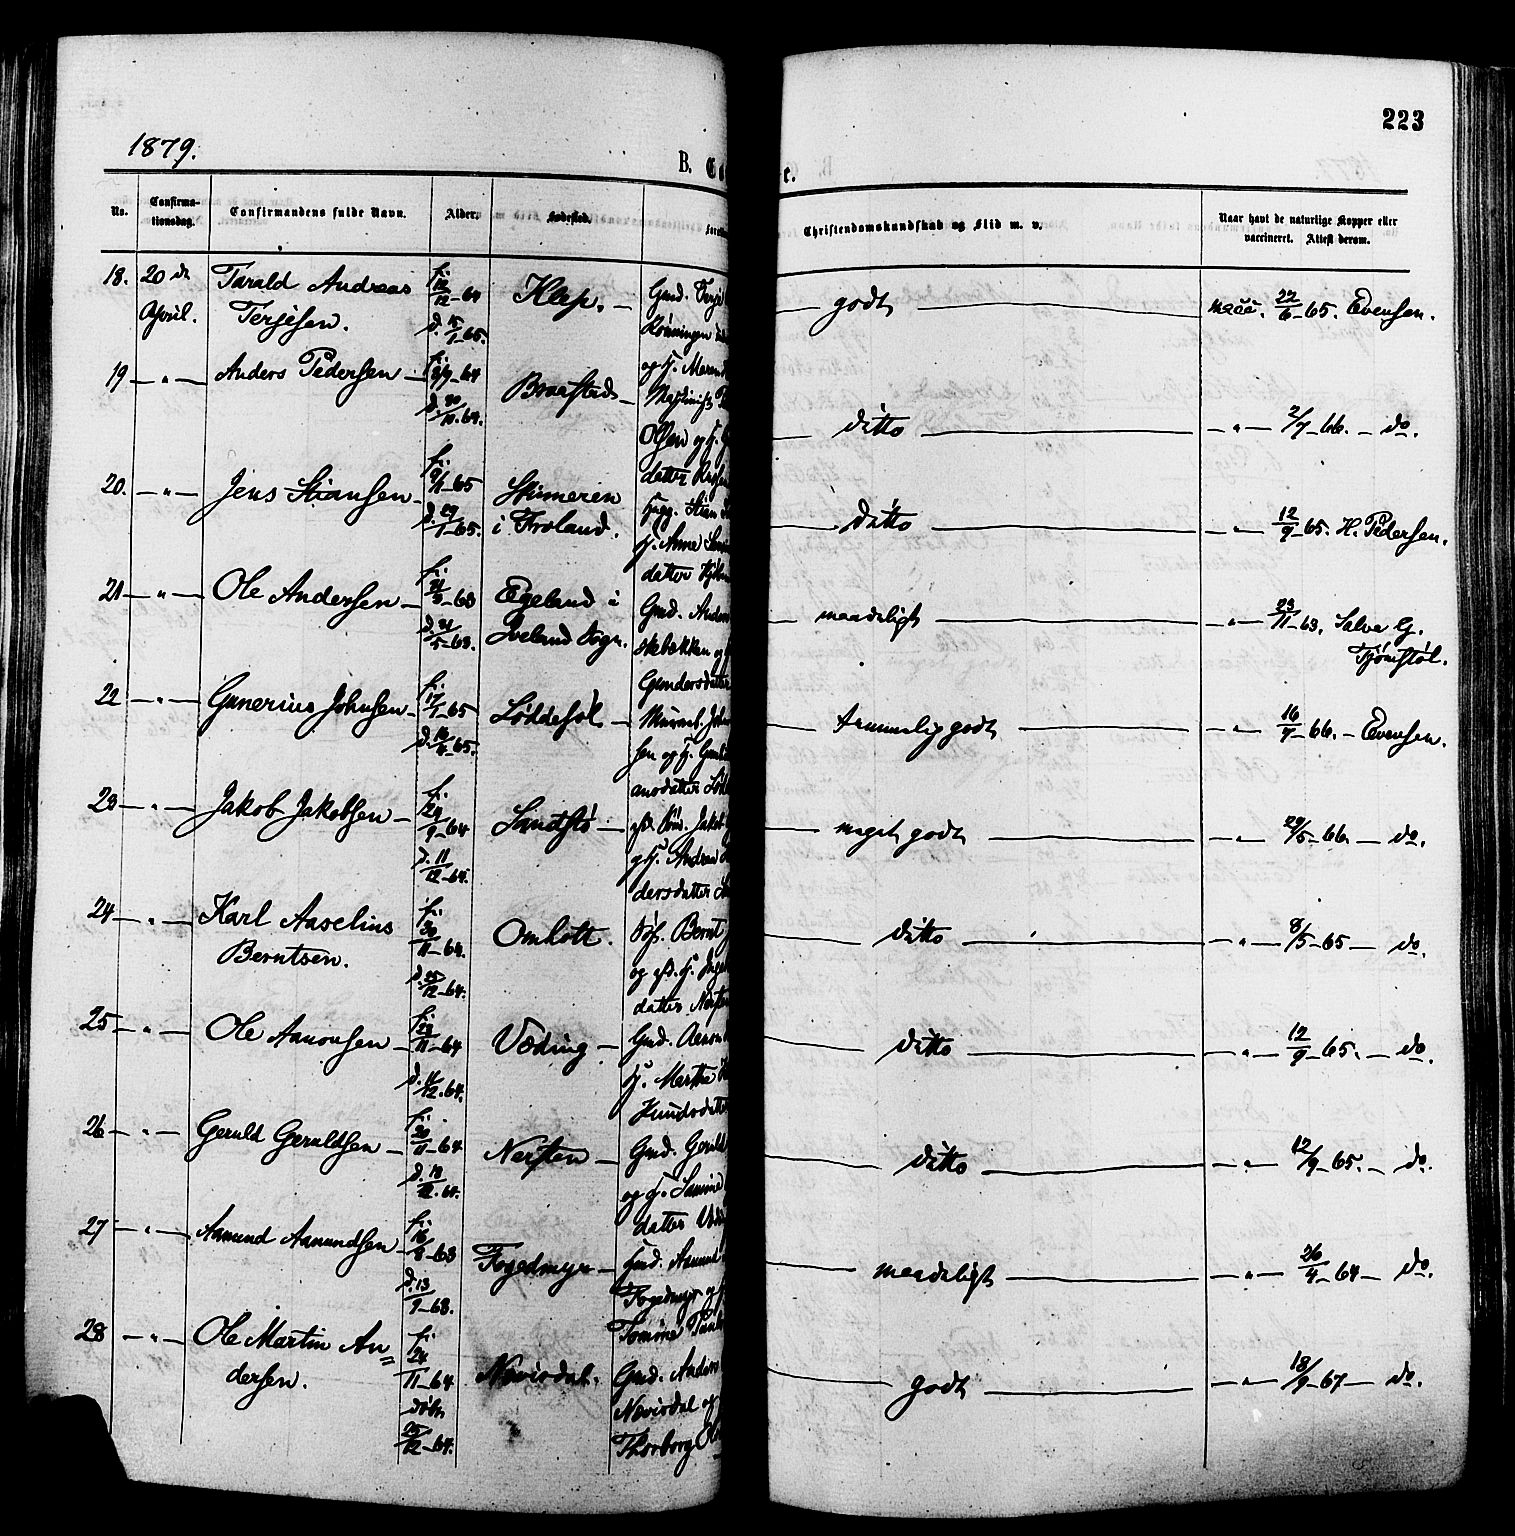 223
1879.
B. Co
r.
No.
Confirma-
tionsdag.
Confirmandens fulde Navn.
Alder.
Fødested.
Forældre
Christendomskundskab og Flid m. v.
Naar havt de naturlige Kopper eller
vaccineret. Attest derom.
18. 20 de
April.
Tarald Andreas
Terjesen.
f. 12/12-64
d. 15/1-65.
Klep.
Gmd. Terje
Rønningen
og H. Maren
godt
vacc. 22/6-65. Evensen.
19 — " — Anders Pedersen
f. 3/9-64
d. 30/10.64.
Braastad
Maskinist
Olsen og H.
datter
ditto
" 2/7-66. do.
20. — " — Jens Stiansen
f. 9/1-65
d. 29/1-65.
Stimeren
i Froland.
Huusm. Stian
H. Anne
datter
ditto
" 12/9-65. H. Pedersen.
21 — " — Ole Andersen
f. 21/3-63
d. 31/5-63.
Egeland i
Iveland Sogn.
Gmd. Anders
skebækken og
Gundersdatter
maadeligt
" 23/11-63. Salve G.
Tjømstøl.
22 — " — Gunerius Johnsen
f. 17/1-65
d. 16/4-65.
Løddesøl
Murarb. John
sen og H.
ansdatter
temmelig godt
" 16/7-66. Evensen.
23 — " — Jakob Jakobsen
f. 29/9-64
d. 11/12-64.
Sandstø
gfd. Søm. Jakob
og H. Andrea
dersdatter
meget godt
" 29/5-66. do.
24 — " — Karl Aaselius
Berntsen.
f. 30/11-64.
d. 25/12-64.
Omholt.
Søf. Bernt
og gfd. H.
datter
ditto
" 8/5-65 do.
25 — " — Ole Aanonsen
f. 23/11-64
d. 11/12.64.
Væding
Gmd. Aanon
H. Marthe
Knudsdatter
ditto
" 12/9-65. do.
26 — " — Geruld Geruldsen
f. 20/11-64
d. 18/12.64.
Nersten
Gmd. Geruld
og H.
datter
ditto
" 12/9-65. do.
27 — " — Aamund Aamundsen
f. 16/8-63
d. 13/9-63.
Fogedmyr
Gmd. Aamund
Fogedmyr og
Tomine
maadeligt
" 26/4-64 do.
28 — " — Ole Martin An=
dersen.
f. 24/11-64
døbt
25/12-64.
Nævisdal.
Gmd. Anders
Nævisdal og
Thorborg
godt
" 18/9-67 do.